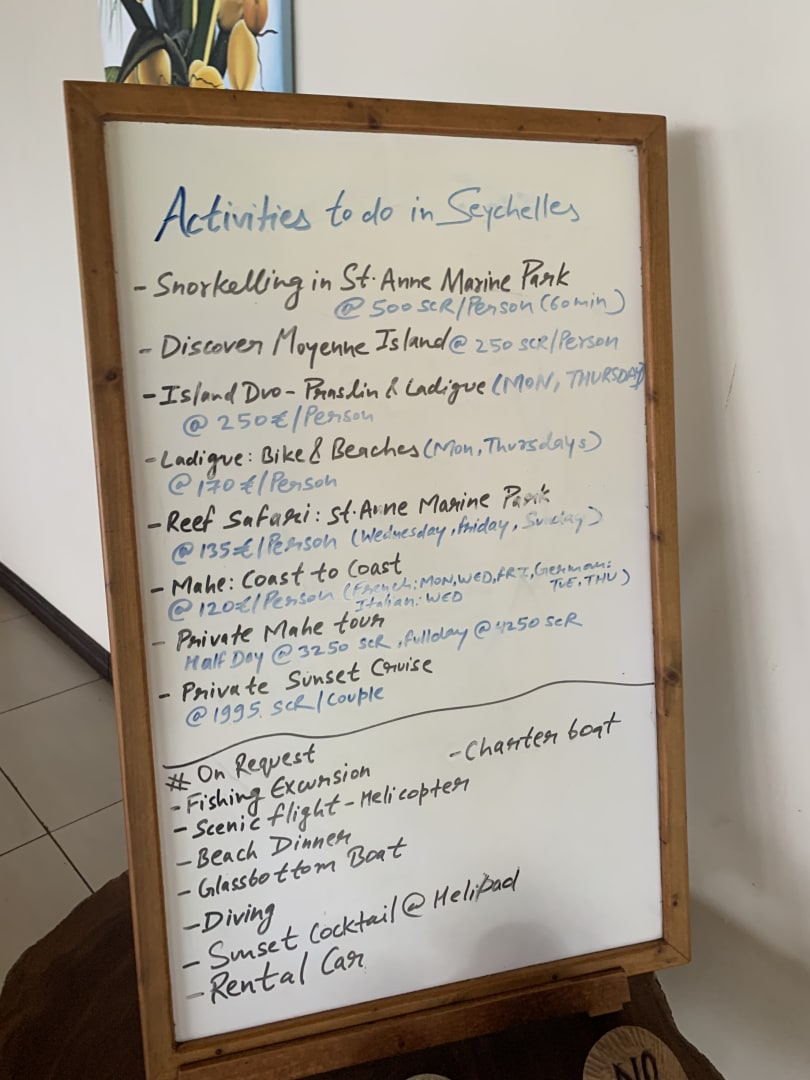 Activities to do in Seychelles
- Snorkelling in St. Anne Marine Park
@ 500 SCR/Person (60min)
- Discover Moyenne Island @ 250 SCR/Person
- Island Duo - Praslin & Ladigue (MON, THURSDAY)
@ 250€/Person
- Ladigue: Bike & Beaches (Mon, Thursdays)
@ 170€/Person
- Reef Safari: St. Anne Marine Park
@ 135€/Person (Wednesday, friday, Sunday)
- Mahe: Coast to Coast
@ 120€/Person (French: MON, WED, FRI, German: TUE, THU)
Italian: WED
- Private Mahe tour
Half Day @ 3250 SCR, fullday @ 4250 SCR
- Private Sunset Cruise
@ 1995 SCR/Couple
# On Request
- Charter boat
- Fishing Excursion
- Scenic flight - Helicopter
- Beach Dinner
- Glassbottom Boat
- Diving
- Sunset Cocktail @ Helipad
- Rental Car
NO